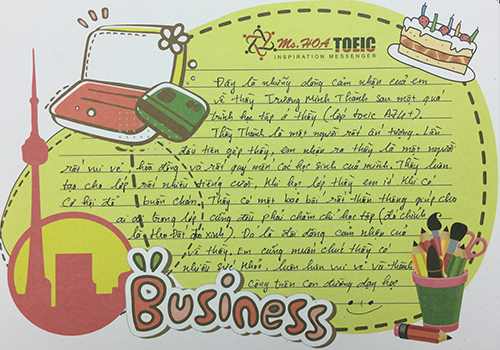 Ms. HOA TOEIC
INSPIRATION MESSENGER
Đây là những dòng cảm nhận của em
về thầy Trương Minh Thành sau một quá
trình học tập ở thầy (lớp toeic A24+).
Thầy Thành là một người rất ấn tượng. Lần
đầu tiên gặp thầy, em nhận ra thầy là một người
rất vui vẻ, hòa đồng và rất quý mến các học sinh của mình. Thầy luôn
tạo cho lớp rất nhiều tiếng cười. Khi học lớp thầy em ít khi có
cơ hội để buồn chán. Thầy có một bài rất thần thông giúp cho
ai ai trong lớp cũng đều phải chăm chỉ học tập (đó chính
là thơ Đột đa xinh). Đó là đôi dòng cảm nhận của
về thầy. Em cũng muốn chúc thầy có
nhiều sức khoẻ, luôn luôn vui vẻ và thành
công trên con đường dạy học
Business